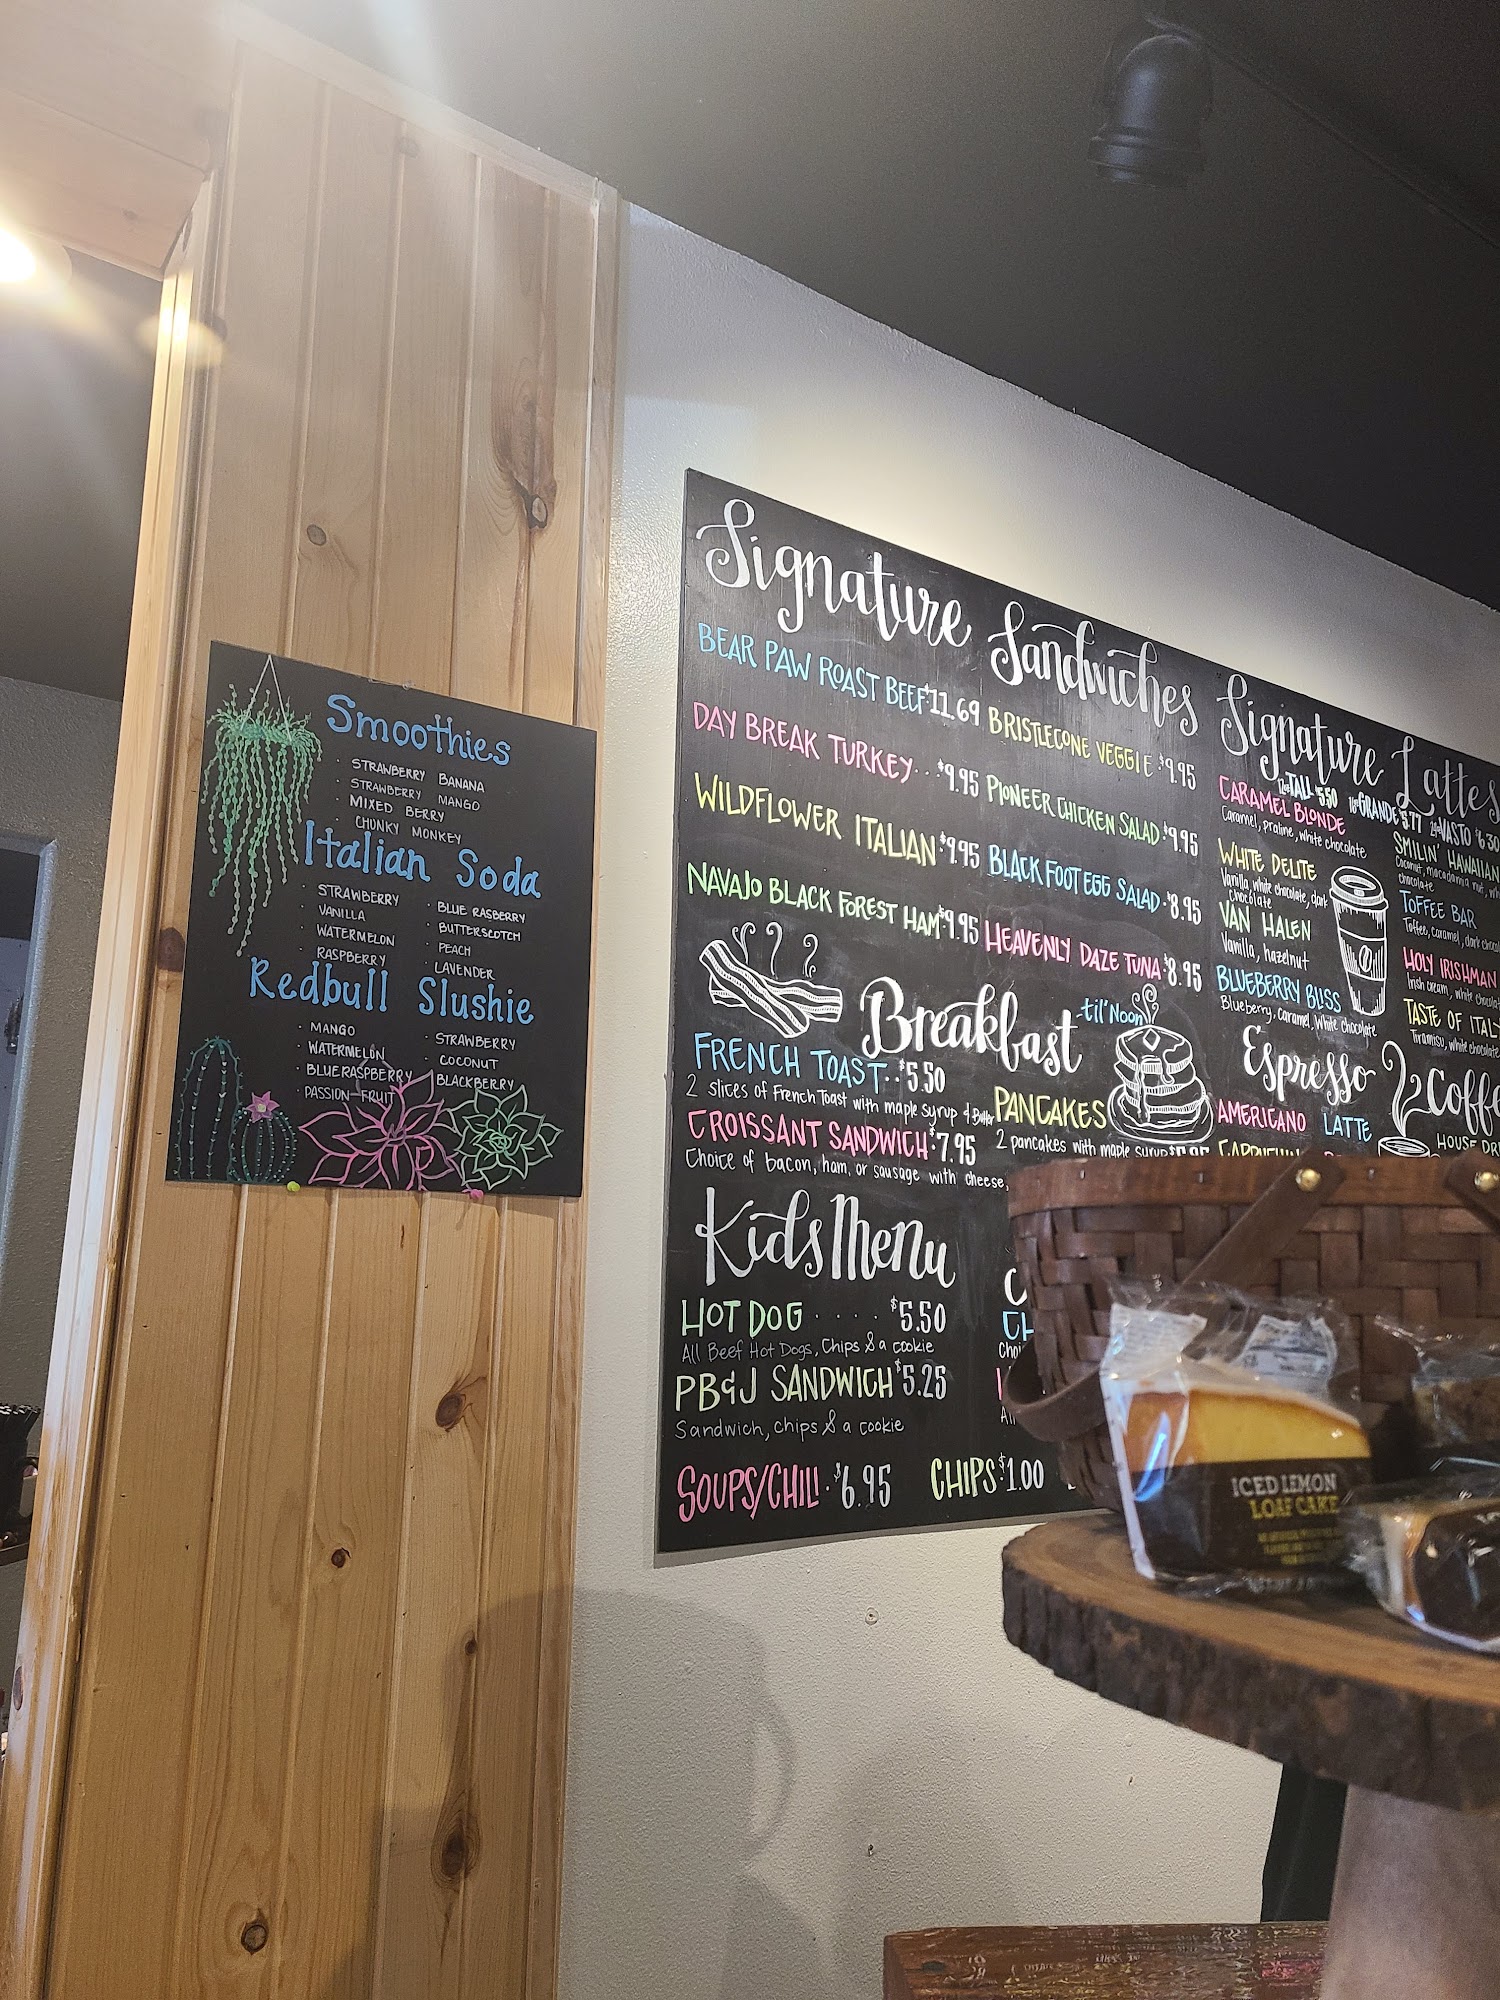 Smoothies
· STRAWBERRY BANANA
· STRAWBERRY MANGO
· MIXED BERRY
· CHUNKY MONKEY
Italian Soda
· STRAWBERRY
· VANILLA
· WATERMELON
· RASPBERRY
· BLUE RASBERRY
· BUTTERSCOTCH
· PEACH
· LAVENDER
Redbull Slushie
· MANGO
· WATERMELON
· BLUERASPBERRY
· PASSION-FRUIT
· STRAWBERRY
· COCONUT
· BLACKBERRY
Signature Sandwiches
BEAR PAW ROAST BEEF $11.69
DAY BREAK TURKEY... $9.95
WILDFLOWER ITALIAN $9.95
NAVAJO BLACK FOREST HAM $9.95
BRISTLECONE VEGGIE · $9.95
PIONEER CHICKEN SALAD · $9.95
BLACK FOOT EGG SALAD · $8.95
HEAVENLY DAZE TUNA $8.95
Breakfast -til' Noon
FRENCH TOAST.. $5.50
2 slices of French Toast with maple syrup & Butter
CROISSANT SANDWICH $7.95
Choice of bacon, ham, or sausage with cheese,
PANCAKES
2 pancakes with maple syrup
Kids Menu
HOT DOG ..... $5.50
All Beef Hot Dogs, Chips & a cookie
PB&J SANDWICH $5.25
Sandwich, chips & a cookie
SOUPS/CHILI · $6.95
CHIPS $1.00
Signature Lattes
12oz TALL $5.50 16oz GRANDE $5.77 24oz VASTO $6.30
CARAMEL BLONDE
Caramel, praline, white chocolate
WHITE DELITE
Vanilla, white chocolate, dark
Chocolate
VAN HALEN
Vanilla, hazelnut
BLUEBERRY BLISS
Blueberry, Caramel, White chocolate
SMILIN' HAWAIIAN
Coconut, macadamia nut,
chocolate
TOFFEE BAR
Toffee, caramel, dark
HOLY IRISHMAN
Irish cream, white
TASTE OF
Tiramisu, white chocolate
Espresso
AMERICANO
LATTE
HOUSE
ICED LEMON
LOAF CAKE